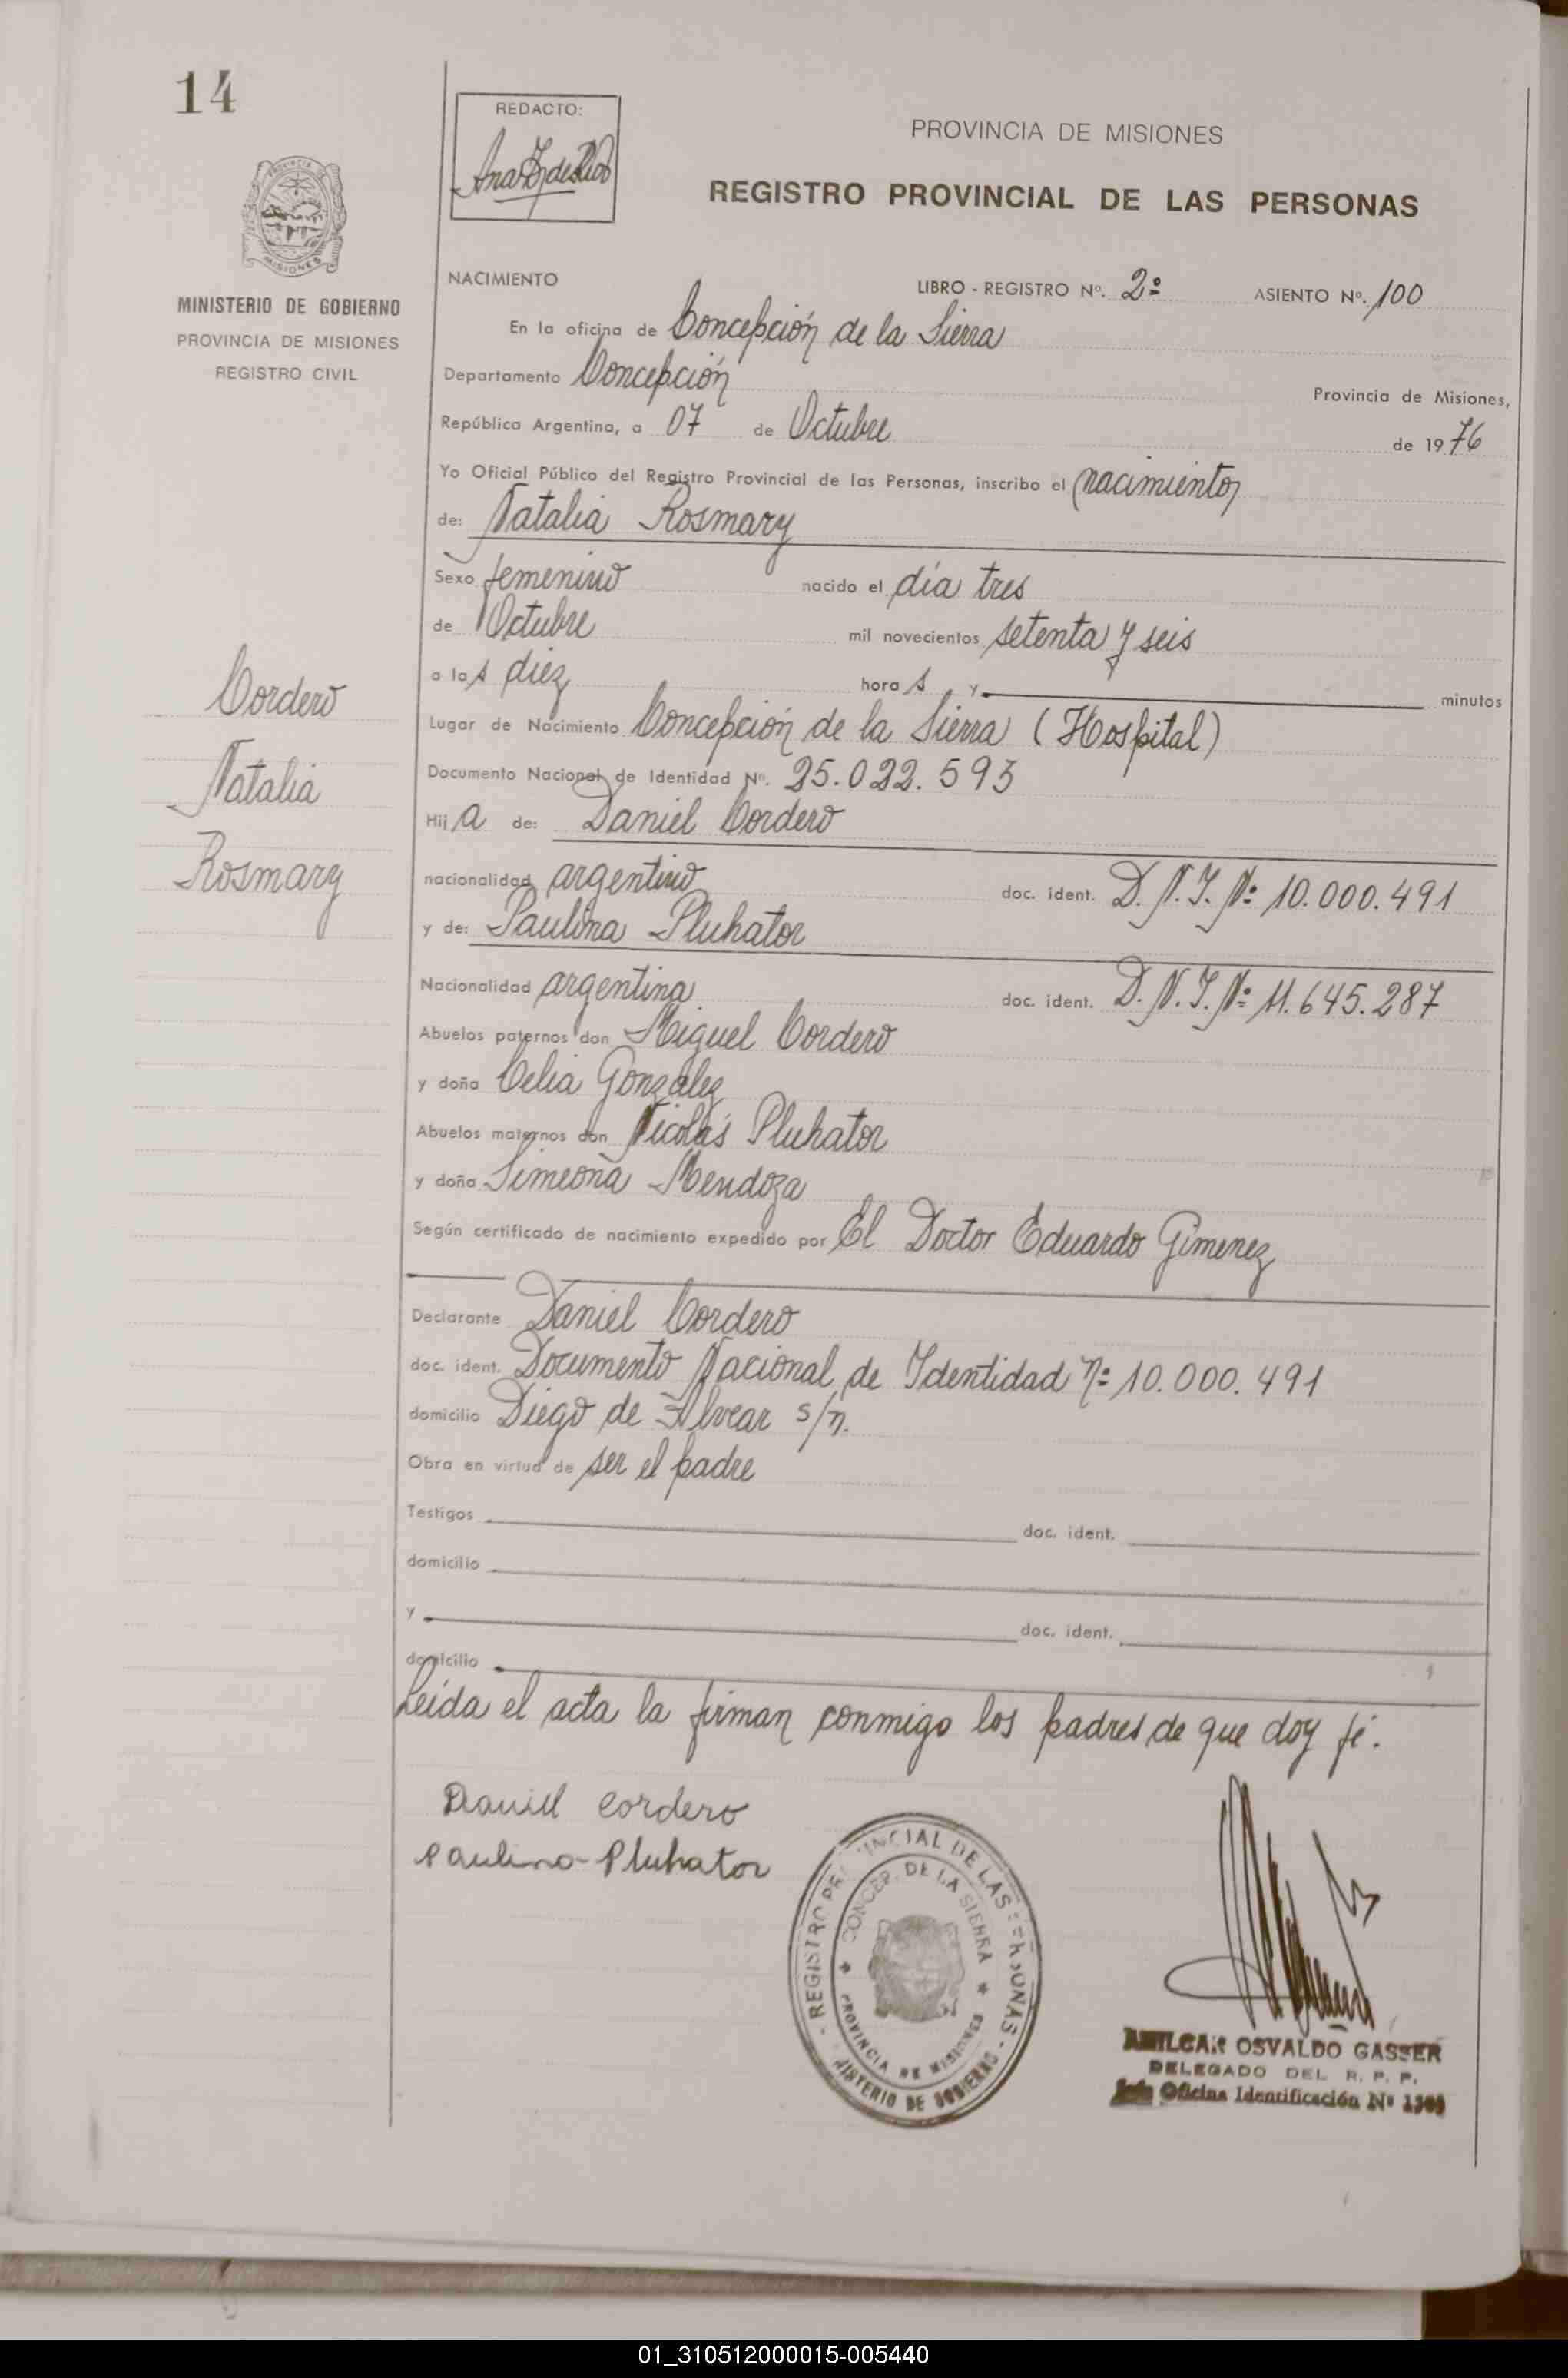 14
REDACTO:
PROVINCIA DE MISIONES
REGISTRO PROVINCIAL DE LAS PERSONAS
PROVINCIA
MISIONES
MINISTERIO DE GOBIERNO
PROVINCIA DE MISIONES
REGISTRO CIVIL
NACIMIENTO LIBRO - REGISTRO Nº. 2º ASIENTO Nº. 100
En la oficina de Concepción de la Sierra
Departamento Concepción Provincia de Misiones,
República Argentina, a 07 de Octubre de 1976
Yo Oficial Público del Registro Provincial de las Personas, inscribo el nacimiento
de: Natalia Rosmary
Sexo femenino nacido el día tres
de Octubre mil novecientos setenta y seis
a las diez horas y minutos
Lugar de Nacimiento Concepción de la Sierra (Hospital)
Documento Nacional de Identidad Nº. 25.022.593
Hija de: Daniel Cordero
nacionalidad argentino doc. ident. D.N.I. Nº 10.000.491
y de: Paulina Pluhator
Nacionalidad argentina doc. ident. D.N.I. Nº 11.645.287
Abuelos paternos don Miguel Cordero
y doña Celia González
Abuelos maternos don Nicolás Pluhator
y doña Simeona Mendoza
Según certificado de nacimiento expedido por El Doctor Eduardo Gimenez
Declarante Daniel Cordero
doc. ident. Documento Nacional de Identidad Nº 10.000.491
domicilio Diego de Alvear s/n.
Obra en virtud de ser el padre
Testigos doc. ident.
domicilio
y doc. ident.
domicilio
Leída el acta la firman conmigo los padres de que doy fé.
Cordero
Natalia
Rosmary
Daniel Cordero
Paulina Pluhator
REGISTRO PROVINCIAL DE LAS PERSONAS
CONCEP. DE LA SIERRA
PROVINCIA DE MISIONES
MINISTERIO DE GOBIERNO
AMILCAR OSVALDO GASSER
DELEGADO DEL R. P. P.
Oficina Identificación Nº
01_310512000015-005440